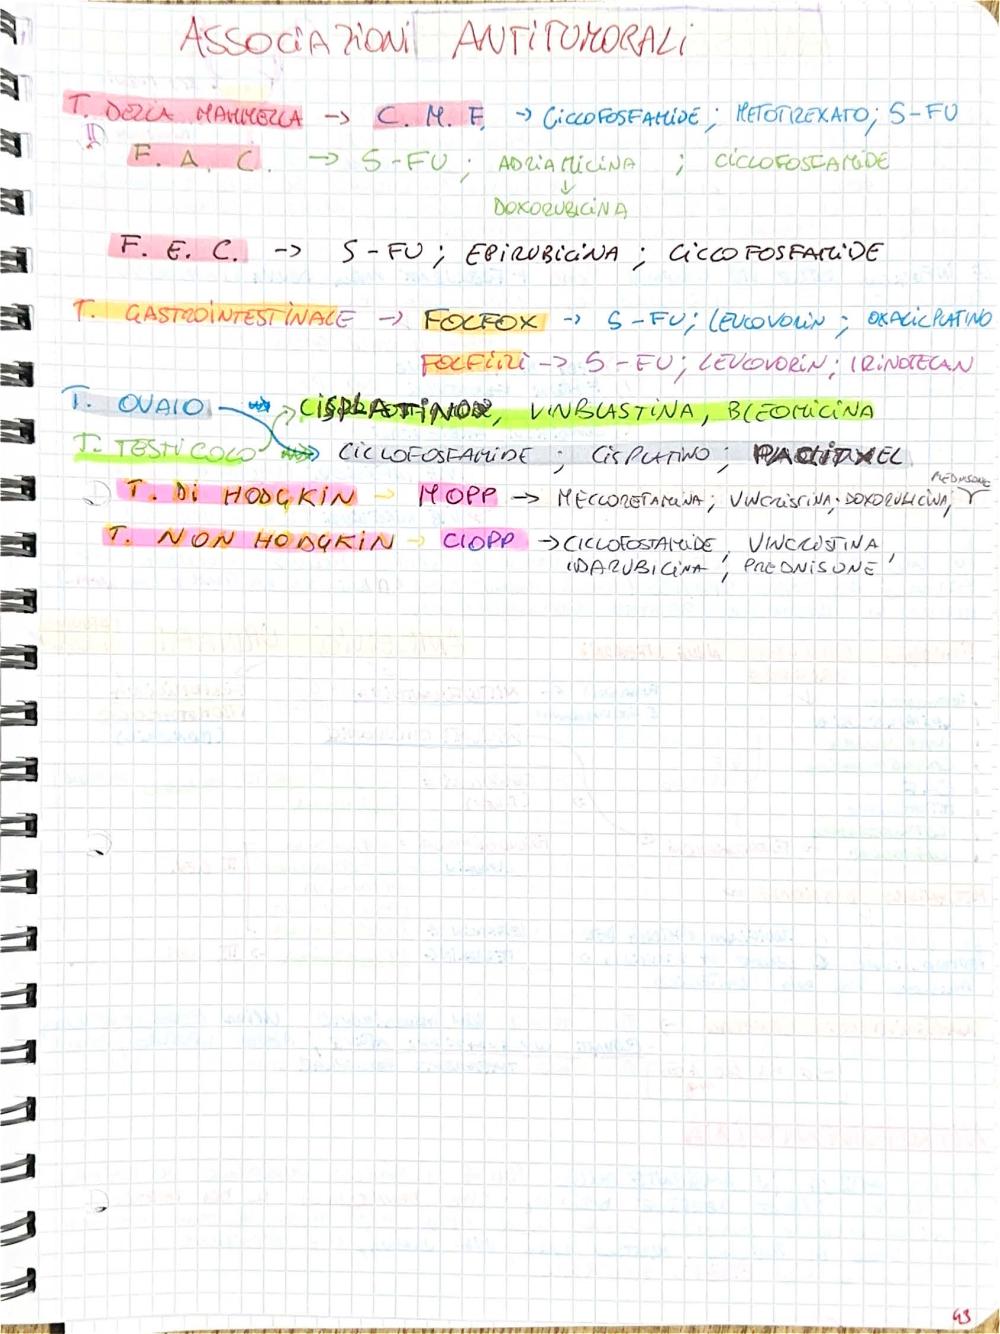 ASSOCIAZIONI ANTITUMORALI
T. DELLA MAMMELLA → C. M. F. → CICLOFOSFAMIDE; METOTREXATO; 5-FU
F. A. C. → 5-FU; ADRIAMICINA ; CICLOFOSFAMIDE
↓
DOXORUBICINA
F. E. C. → 5-FU; EPIRUBICINA; CICLOFOSFAMIDE
T. GASTROINTESTINALE → FOLFOX → 5-FU; LEUCOVORIN; OXALICPLATINO
FOLFIRI → 5-FU; LEUCOVORIN; IRINOTECAN
T. OVAIO → CISPLATINO, VINBLASTINA, BLEOMICINA
T. TESTICOLO → CICLOFOSFAMIDE; CISPLATINO; PACLITAXEL
PREDNISONE
T. DI HODGKIN → MOPP → MECLORETAMINA; VINCRISTINA; DOXORUBICINA,
T. NON HODGKIN → CIOPP → CICLOFOSFAMIDE, VINCRISTINA,
IDARUBICINA, PREDNISONE
43